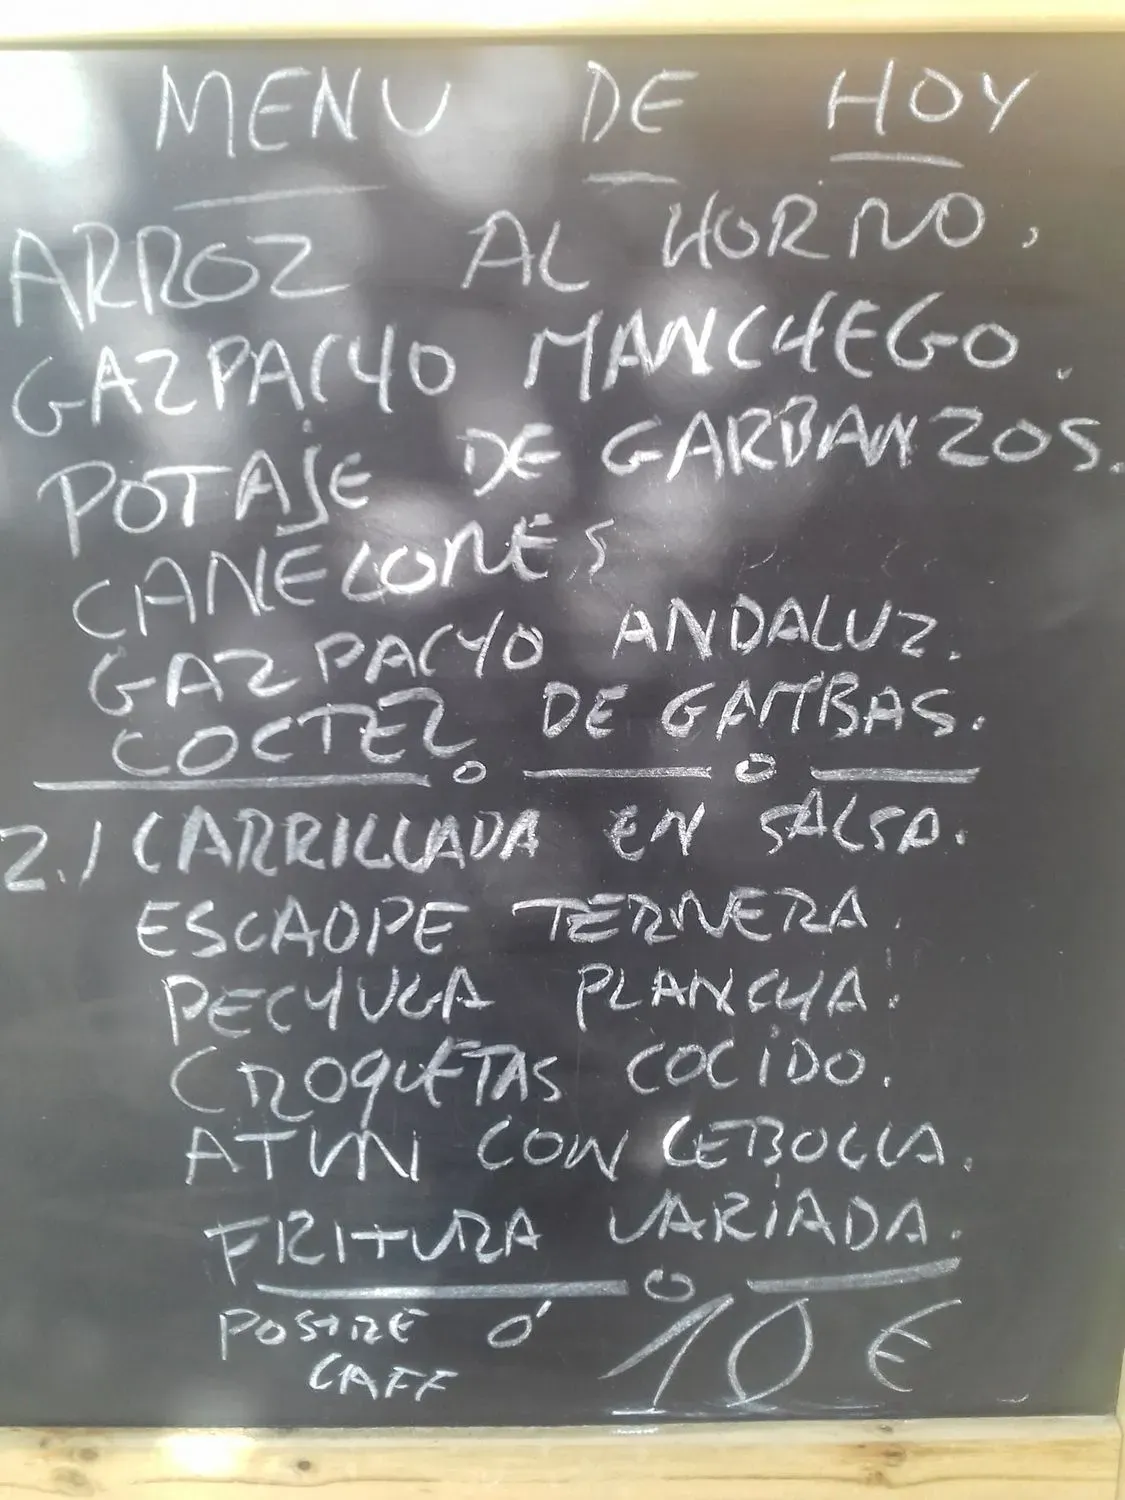 MENU DE HOY
ARROZ AL HORNO.
GAZPACHO MANCHEGO.
POTAJE DE GARBANZOS.
CANELONES
GAZPACHO ANDALUZ.
COCTEL DE GAMBAS.
2./ CARRILLADA EN SALSA.
ESCAOPE TERNERA.
PECHUGA PLANCHA.
CROQUETAS COCIDO.
ATUN CON CEBOLLA.
FRITURA VARIADA.
POSTRE Ó 10€
CAFE